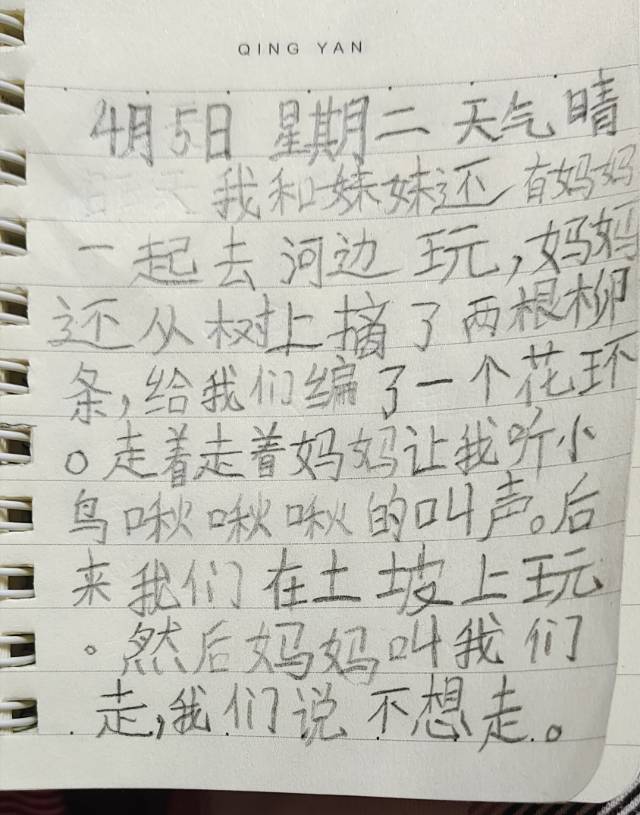 QING YAN
4月5日 星期二 天气晴
我和妹妹还有妈妈
一起去河边玩,妈妈
还从树上摘了两根柳
条,给我们编了一个花环
。走着走着妈妈让我听小
鸟啾啾啾的叫声。后
来我们在土坡上玩
。然后妈妈叫我们
走,我们说不想走。